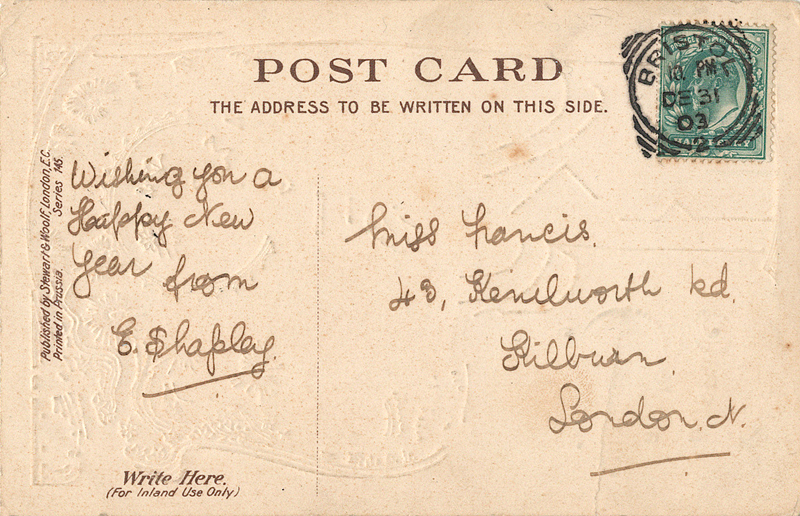 POST CARD
THE ADDRESS TO BE WRITTEN ON THIS SIDE.
BRISTOL
10. PM
DE 31
03
Published by Stewart & Woolf, London, E.C.
Series 145.
Printed in Prussia.
Wishing you a
Happy New
Year from
E. Shapley
Miss Francis.
43, Kenilworth Rd.
Kilburn.
London. N.
Write Here.
(For Inland Use Only)